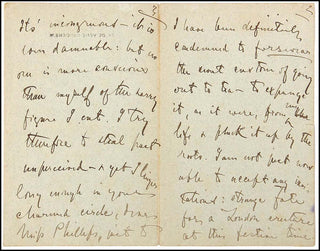 It's incongruous – it is
even damnable: but no
one is more conscious
than myself of the sorry
figure I cut. I try
therefore to steal past
unperceived – & yet I linger
long enough in your
charmed circle, dear
Miss Phillips, not to
I have been definitively
condemned to forswear
the usual custom of going
out to tea – to expunge
it, as it were, from
life & pluck it up by the
roots. I am not now
able to accept any invi-
tations: strange fate
for a London creature
at this festive time